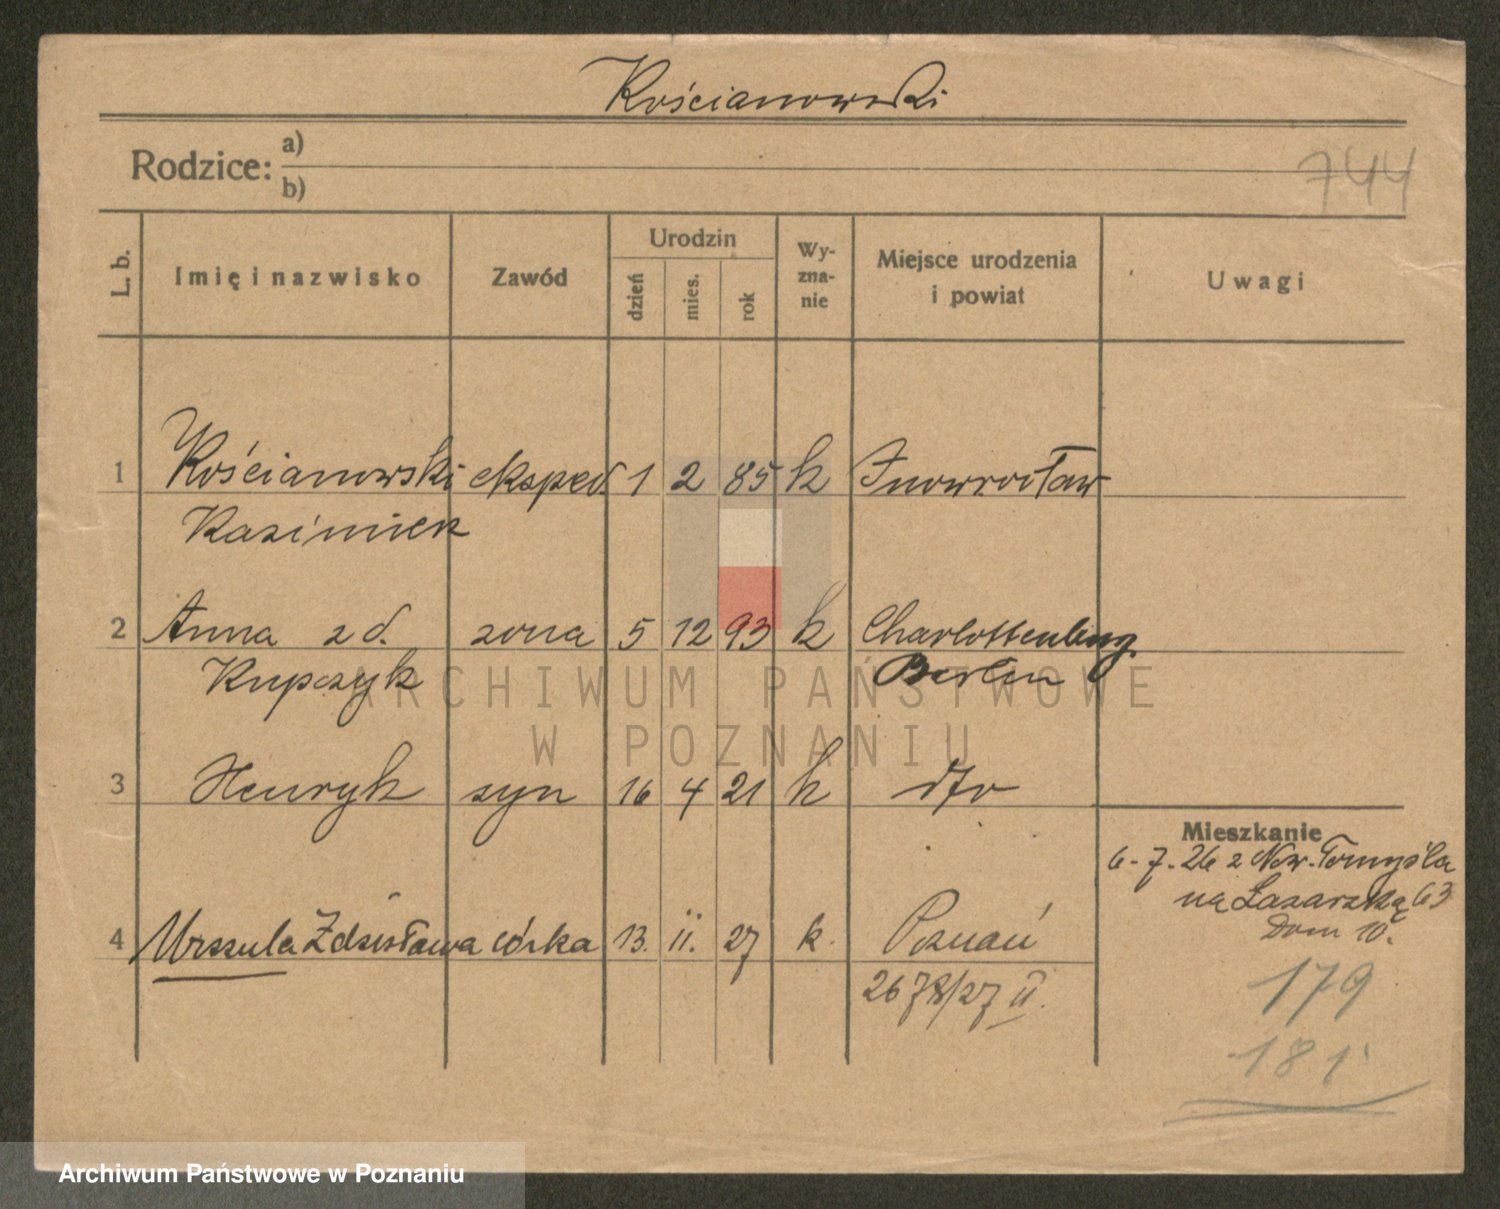 Kościanowski
Rodzice: a)
b)
744
L. b. Imię i nazwisko Zawód Urodzin dzień mies. rok Wyznanie Miejsce urodzenia i powiat Uwagi
1 Kościanowski eksped. 1 2 85 k Inowrocław
Kazimierz
2 Anna z d. żona 5 12 93 k Charlottenburg
Kupczyk Berlin
ARCHIWUM PAŃSTWOWE
W POZNANIU
3 Henryk syn 16 4 21 k dto
Mieszkanie
6-7-26 z Now. Tomyśla
na Łazarską 63
Dom 10.
4 Urszula Zdzisława córka 13. II. 27 k. Poznań
2678/27 II.
179
181
Archiwum Państwowe w Poznaniu